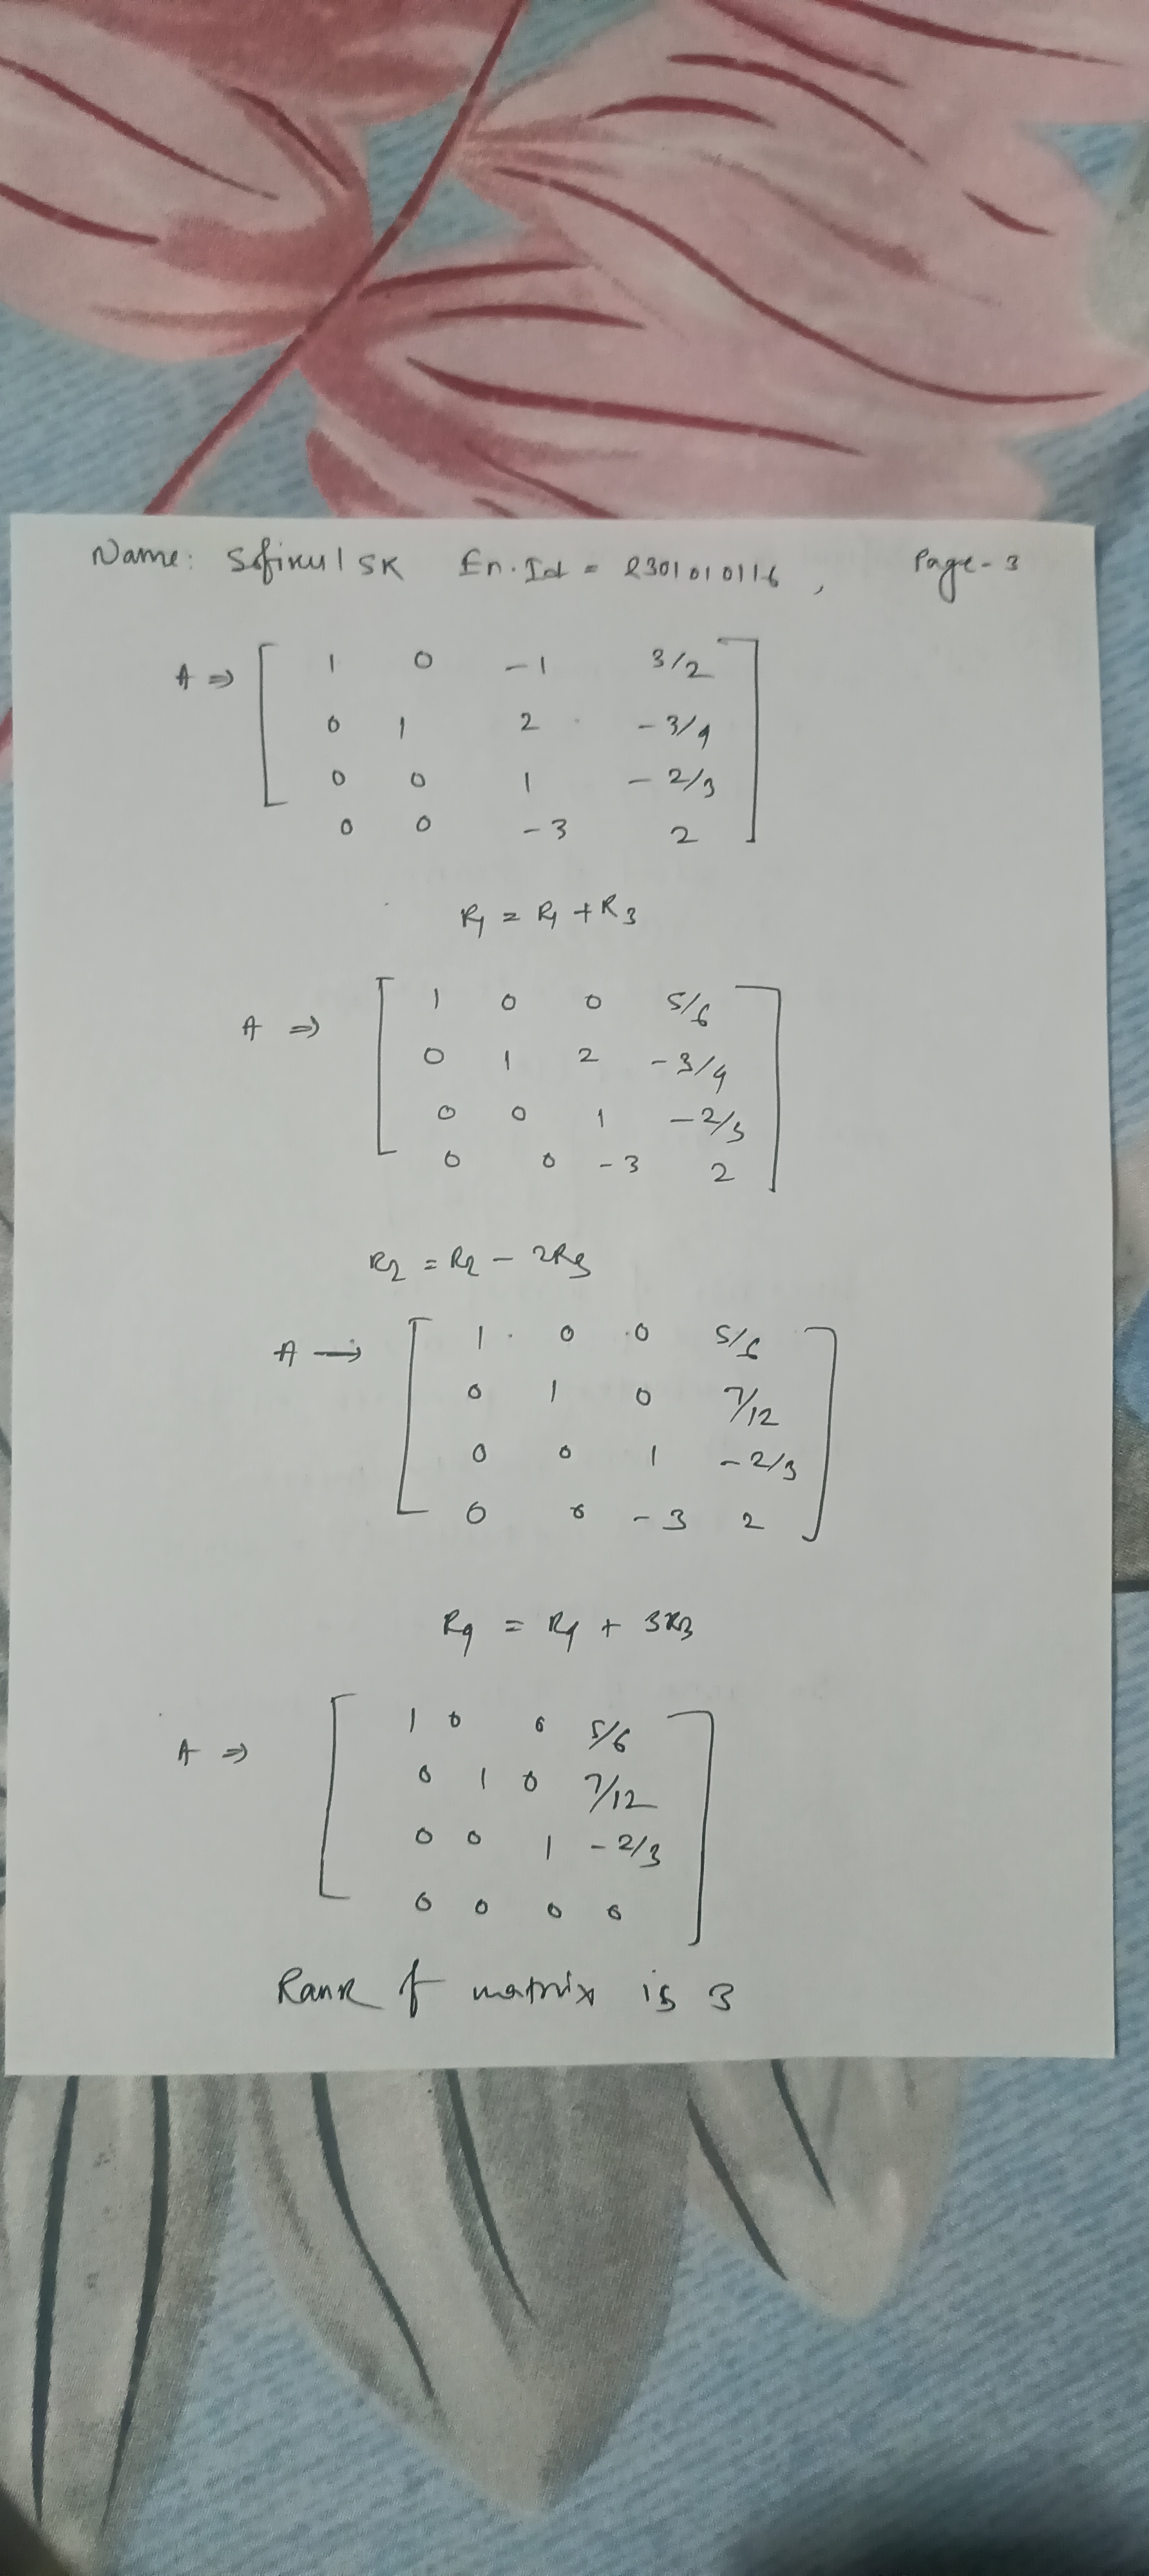 Name: Sofikul SK En. Id = 2301010116, Page-3
A ⇒ [ 1 0 -1 3/2 ]
0 1 2 -3/4
0 0 1 -2/3
0 0 -3 2
R1 = R1 + R3
A ⇒ [ 1 0 0 5/6 ]
0 1 2 -3/4
0 0 1 -2/3
0 0 -3 2
R2 = R2 - 2R3
A → [ 1 0 0 5/6 ]
0 1 0 7/12
0 0 1 -2/3
0 0 -3 2
R4 = R4 + 3R3
A ⇒ [ 1 0 0 5/6 ]
0 1 0 7/12
0 0 1 -2/3
0 0 0 0
Rank of matrix is 3